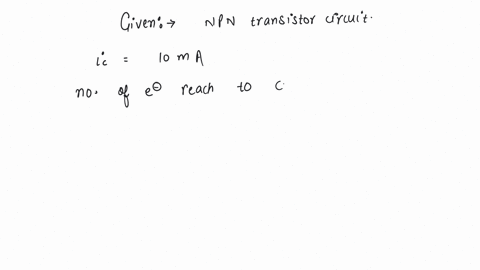 Given:→ NPN transistor circuit.
ic = 10 mA
no. of e⊖ reach to C